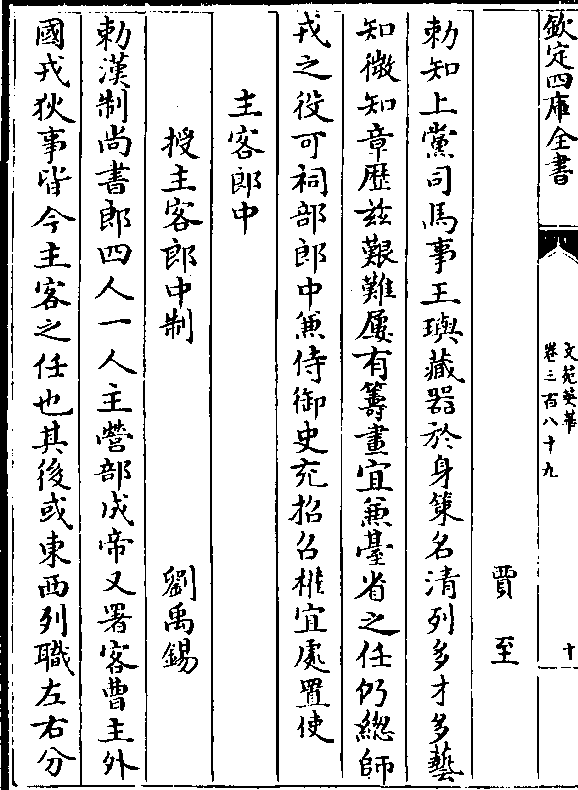 欽定四庫全書
文苑英華
卷三百八十九
十
賈至
勅知上黨司馬事王璵藏器於身策名清列多才多藝
知微知章歴兹艱難屢有籌畫宜兼臺省之任仍總師
戎之役可祠部郎中兼侍御史充招召榷宜處置使
主客郎中
授主客郎中制
劉禹錫
勅漢制尚書郎四人一人主營部成帝又署客曹主外
國戎狄事皆今主客之任也其後或東西列職左右分